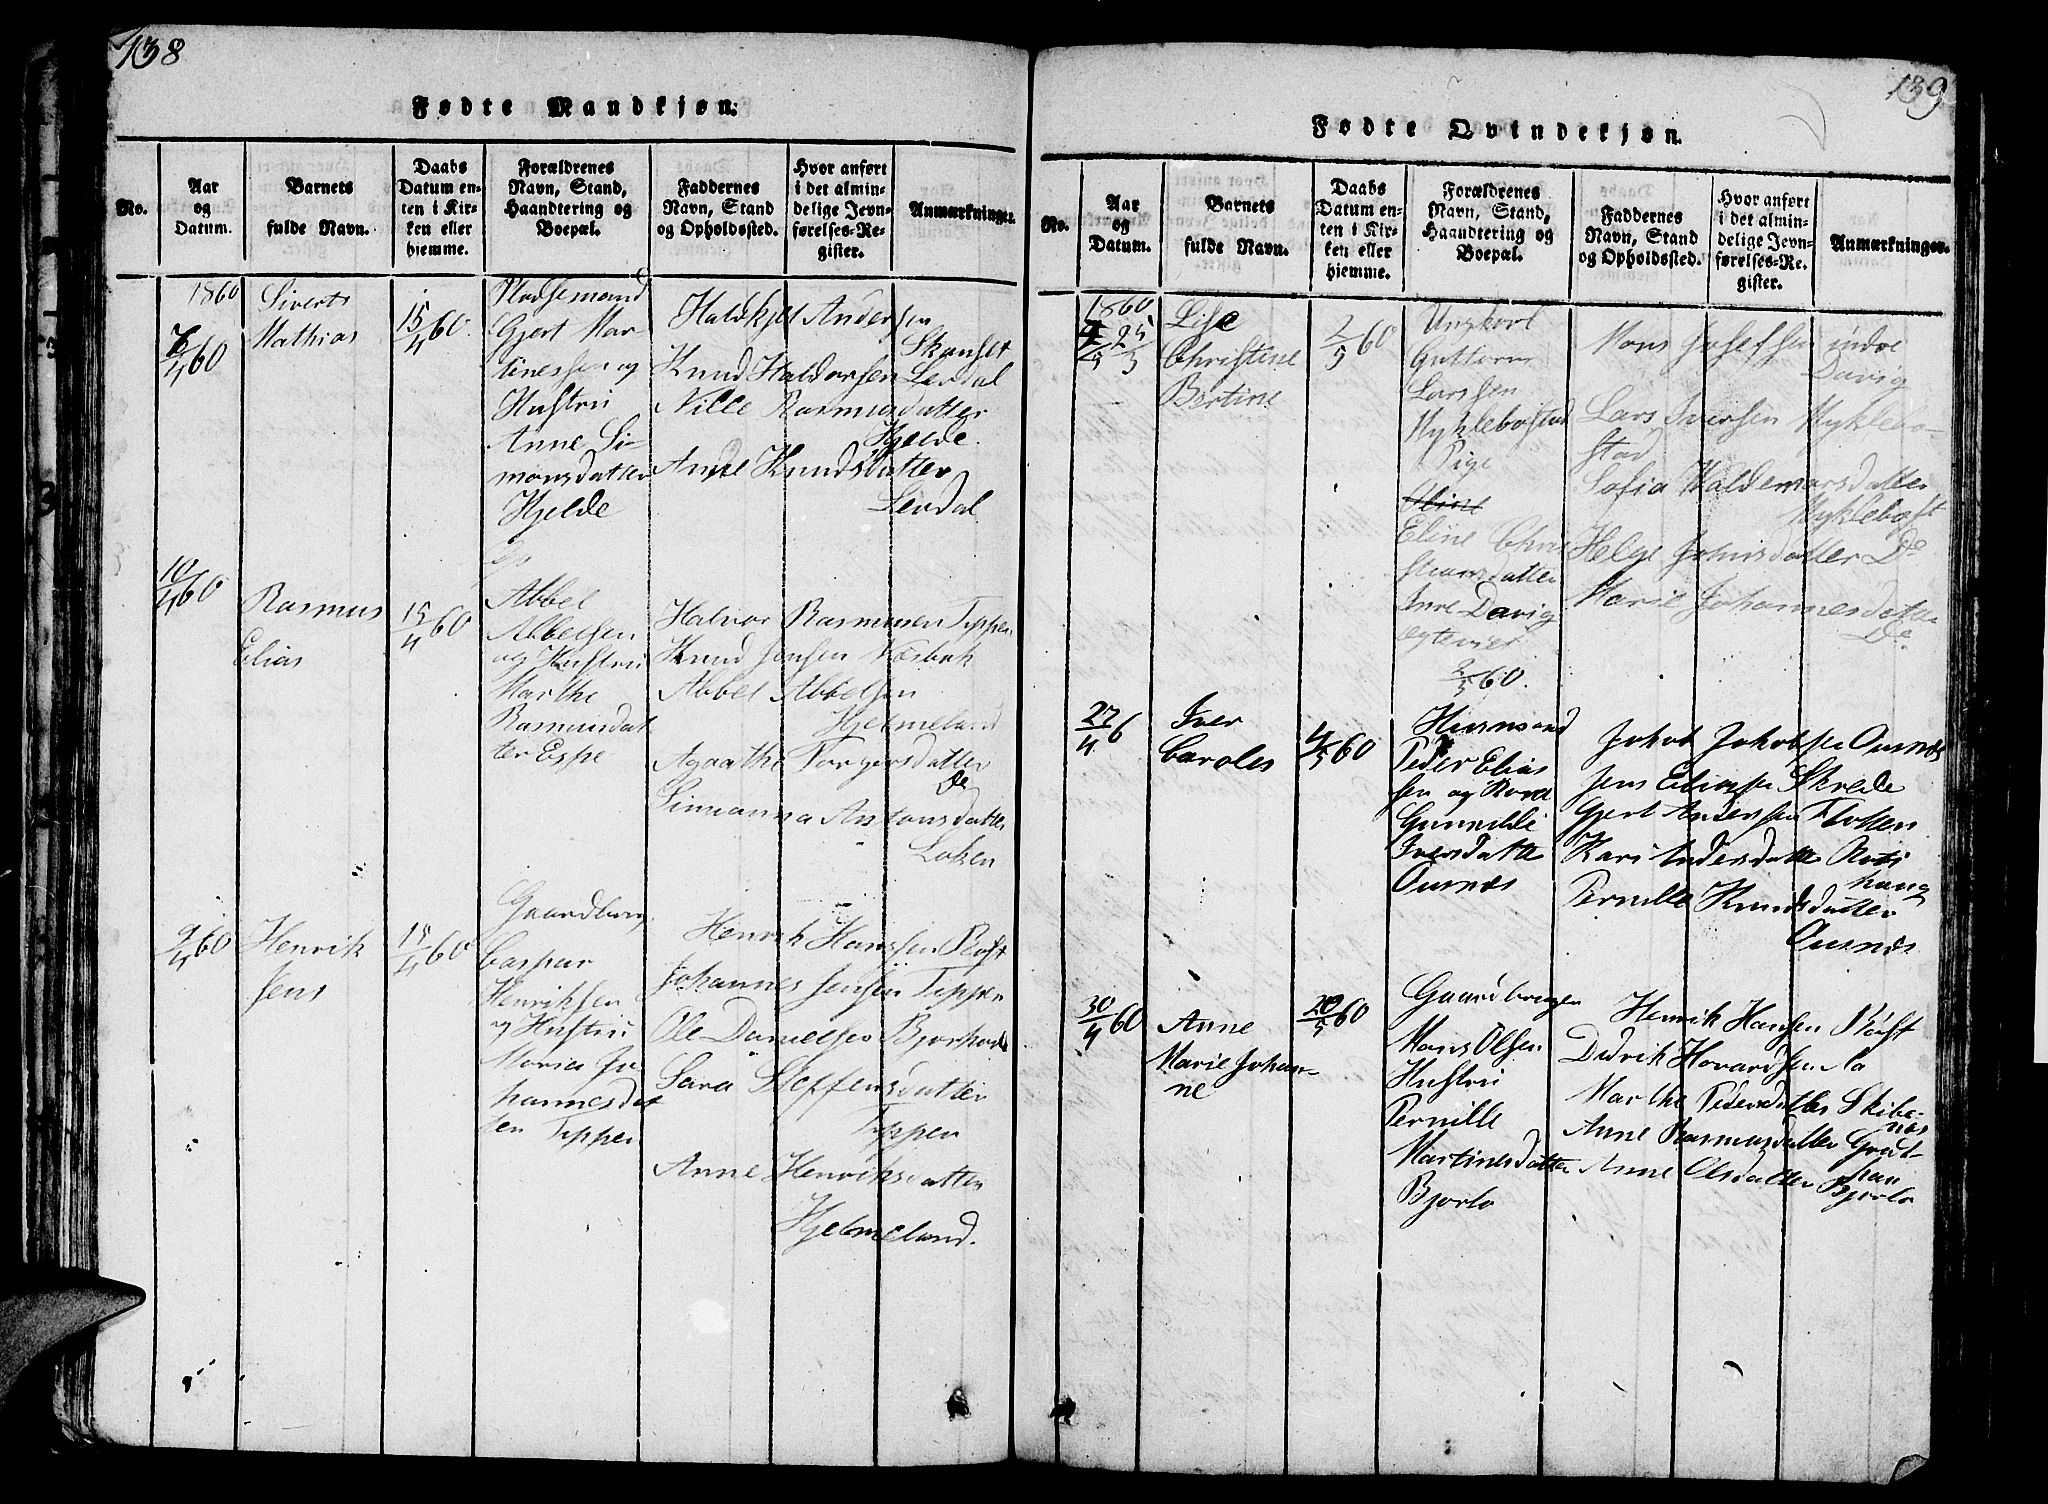 138
Fødte Mandkjøn.
No.
Aar
og
Datum.
Barnets
fulde Navn.
Daabs
Datum en-
ten i Kir-
ken eller
hjemme.
Forældrenes
Navn, Stand,
Haandtering og
Boepæl.
Faddernes
Navn, Stand
og Opholdssted.
Hvor anført
i det almin-
delige Jevn-
førelses-Re-
gister.
Anmærkninger.
1860
4/60
Siverts
Mathias
15/4 60
Gjert Mar-
tinessen og
Hustru
Anne Si-
monsdatter
Hjelde
Haldkjel Andersen
Skanset
Knud Haldorsen Lerdal
Nille Rasmusdatter
Hjelde.
Anne Knudsdatter
Lerdal
10/4 60
Rasmus
Elias
15/4 60
Abbel
Abbelsen
og Hustru
Marthe
Rasmusdat
ter Espe
Halvor Rasmusen Tippen
Knud Jensen Næsbak
Abbel Abbelsen
Hjelmeland
Agaathe Torgersdatter
Do
Simianna Antonsdatter
Loken
9/4 60
Henrik
Jens
15/4 60
Gaardbrug
Caspar
Henriksen
og Hustru
Maria Jo
hannesdat
ter Tippen
Henrik Hanssen Røst
Johannes Jensen Tippen
Ole Danielsen
Sara Steffensdatter
Tippen
Anne Henriksdatter
Hjelmeland.
139
Fødte Qvindekjøn.
No.
Aar
og
Datum.
Barnets
fulde Navn.
Daabs
Datum en-
ten i Kir-
ken eller
hjemme.
Forældrenes
Navn, Stand,
Haandtering og
Boepæl.
Faddernes
Navn, Stand
og Opholdssted.
Hvor anført
i det almin-
delige Jevn-
førelses-Re-
gister.
Anmærkninger.
1860
25/3
Lise
Christine
Bertine
2/5 60
Ungkarl
Guttorm
Larssen
Myklebostad
Pige
Oline
Eline Chris
tiansdatter
Inre Davig
egteviet
2/5 60.
Mons Josefsen indre
Davig
Lars Iversen Myklebo-
stad
Sofia Waldemarsdatter
Myklebost
Helge Johnsdatter Do
Marie Johannesdatter
Do
27/4 6
Iver
Caroles
4/5 60
Huusmand
Peder Elias
sen og Kone
Gunnilde
Iversdatter
Ournæs
Jakob Jakobsen Ournæs
Jens Eliassen Skrede
Gjert Andersen Flotten
Kari Andersdatter
haug
Pernille Knudsdatter
Ournæs
30/4 60
Anne
Marie Johan-
ne
20/5 60
Gaardbruger
Mons Olsen
Hustru
Pernille
Martinesdatter
Bjorlo
Henrik Hansen Røst
Didrik Hovardsen Mo
Marthe Pedersdatter Skibe-
næs
Anne Rasmusdatter
Anne Olsdatter Bjorlo